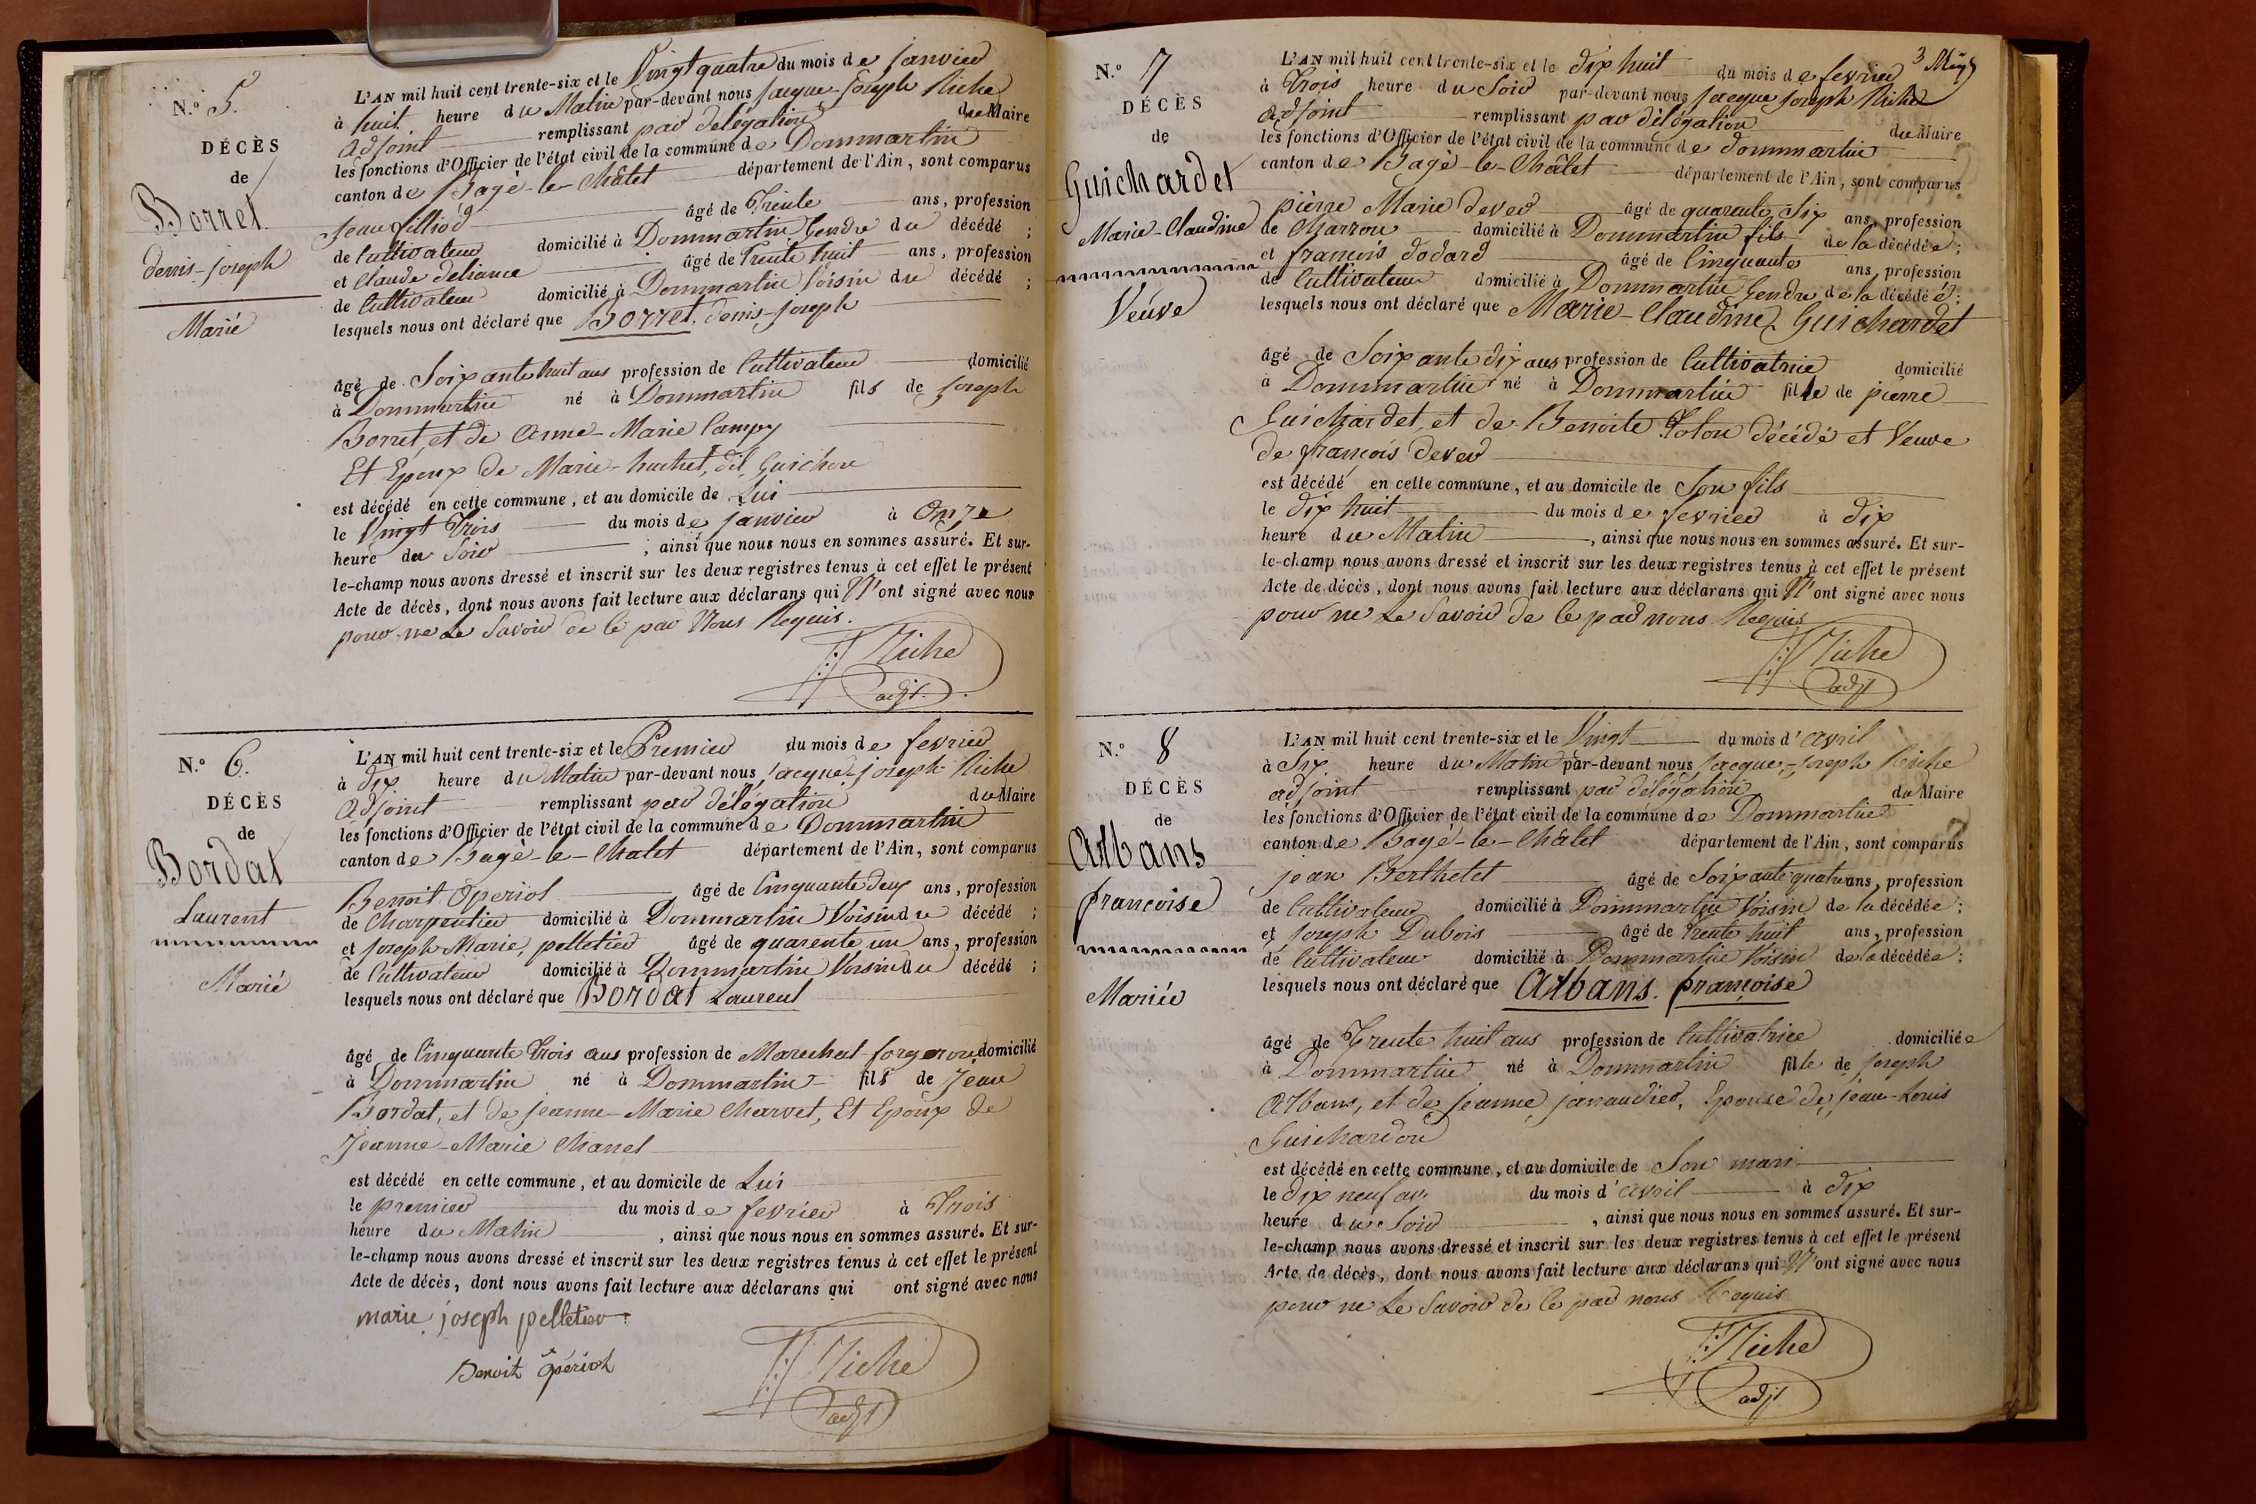 N.° 5.
DÉCÈS
de
Borret
denis-joseph
Marié
L'AN mil huit cent trente-six et le Vingt quatre du mois de janvier
à huit heure du Matin par-devant nous jacque-joseph Riche
adjoint remplissant par délégation du Maire
les fonctions d'Officier de l'état civil de la commune de Dommartin
canton de Bagé-le-Châtel département de l'Ain, sont comparus
jean filliod âgé de Trente ans, profession
de Cultivateur domicilié à Dommartin Gendre du décédé ;
et Claude deliance âgé de Trente huit ans, profession
de Cultivateur domicilié à Dommartin Voisin du décédé ;
lesquels nous ont déclaré que Borret. denis-joseph
âgé de Soixante huit ans profession de Cultivateur domicilié
à Dommartin né à Dommartin fils de joseph
Borret, et de Anne-Marie Campy
Et Epoux de Marie-huchet, dit Guichon
est décédé en cette commune, et au domicile de Lui
le Vingt Trois du mois de janvier à Onze
heure du Soir ; ainsi que nous nous en sommes assuré. Et sur-
le-champ nous avons dressé et inscrit sur les deux registres tenus à cet effet le présent
Acte de décès, dont nous avons fait lecture aux déclarans qui N'ont signé avec nous
pour ne Le Savoir de ce par Nous Requis.
JJ Riche
adjt.
N.° 6.
DÉCÈS
de
Bordat
Laurent
Marié
L'AN mil huit cent trente-six et le Premier du mois de fevrier
à dix heure du Matin par-devant nous jacque-joseph Riche
adjoint remplissant par délégation du Maire
les fonctions d'Officier de l'état civil de la commune de Dommartin
canton de Bagé-le-Chatel département de l'Ain, sont comparus
Benoit Opériol âgé de Cinquante deux ans, profession
de Charpentier domicilié à Dommartin Voisin du décédé ;
et joseph Marie, pelletier âgé de quarente un ans, profession
de Cultivateur domicilié à Dommartin Voisin du décédé ;
lesquels nous ont déclaré que Bordat Laurent
âgé de Cinquante Trois ans profession de Marechal-forgeron domicilié
à Dommartin né à Dommartin fils de Jean
Bordat, et de jeanne-Marie Charvet, Et Epoux de
Jeanne-Marie Chanel
est décédé en cette commune, et au domicile de Lui
le premier du mois de fevrier à Trois
heure du Matin , ainsi que nous nous en sommes assuré. Et sur-
le-champ nous avons dressé et inscrit sur les deux registres tenus à cet effet le présent
Acte de décès, dont nous avons fait lecture aux déclarans qui ont signé avec nous
marie joseph pelletier
Benoit Opériol
JJ Riche
adjt
3 
N.° 7
DÉCÈS
de
Guichardet
Marie-Claudine
Veuve
L'AN mil huit cent trente-six et le dix huit du mois de fevrier
à Trois heure du Soir par-devant nous jacque joseph Riche
adjoint remplissant par délégation du Maire
les fonctions d'Officier de l'état civil de la commune de dommartin
canton de Bagé-le-Châtel département de l'Ain, sont comparus
pierre Marie devev âgé de quarente Six ans, profession
de Charron domicilié à Dommartin fils de la décédée ;
et françois dodard âgé de Cinquante ans, profession
de Cultivateur domicilié à Dommartin Gendre de la décédée ;
lesquels nous ont déclaré que Marie-Claudine Guichardet
âgé de Soixante dix ans profession de Cultivatrice domicilié
à Dommartin né à Dommartin fille de pierre
Guichardet, et de Benoite décédé et Veuve
de françois devev
est décédé en cette commune, et au domicile de Son fils
le dix huit du mois de fevrier à dix
heure du Matin , ainsi que nous nous en sommes assuré. Et sur-
le-champ nous avons dressé et inscrit sur les deux registres tenus à cet effet le présent
Acte de décès, dont nous avons fait lecture aux déclarans qui N'ont signé avec nous
pour ne Le Savoir de ce par nous Requis
JJ Riche
adjt
N.° 8
DÉCÈS
de
Albans
françoise
Mariée
L'AN mil huit cent trente-six et le Vingt du mois d'avril
à Six heure du Matin par-devant nous jacque-joseph Riche
adjoint remplissant par délégation du Maire
les fonctions d'Officier de l'état civil de la commune de Dommartin
canton de Bagé-le-Châtel département de l'Ain, sont comparus
jean Berthelet âgé de Soixante quatre ans, profession
de Cultivateur domicilié à Dommartin Voisin de la décédée ;
et joseph Dubois âgé de Trente huit ans, profession
de Cultivateur domicilié à Dommartin Voisin de la décédée ;
lesquels nous ont déclaré que Albans. françoise
âgé de Trente huit ans profession de Cultivatrice domiciliée
à Dommartin né à Dommartin fille de joseph
Albans, et de jeanne janaudier, Epouse de jean-Louis
Guichardon
est décédé en cette commune, et au domicile de Son mari
le dix neuf du mois d'avril à dix
heure du Soir , ainsi que nous nous en sommes assuré. Et sur-
le-champ nous avons dressé et inscrit sur les deux registres tenus à cet effet le présent
Acte de décès, dont nous avons fait lecture aux déclarans qui N'ont signé avec nous
pour ne Le Savoir de ce par nous Requis
JJ Riche
adjt